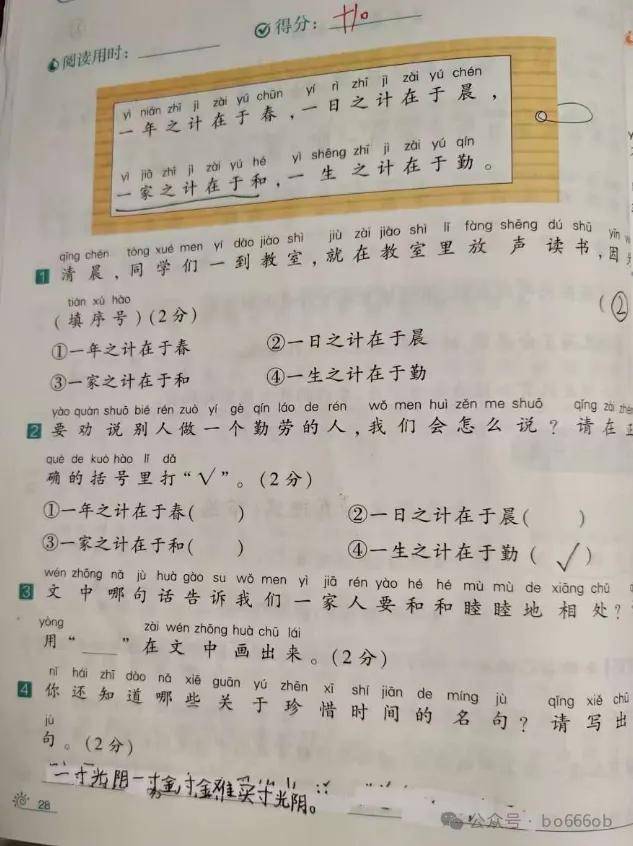 阅读用时：
得分：
yì nián zhī jì zài yú chūn yí rì zhī jì zài yú chén
一年之计在于春，一日之计在于晨，
yì jiā zhī jì zài yú hé yì shēng zhī jì zài yú qín
一家之计在于和，一生之计在于勤。
qīng chén tóng xué men yí dào jiào shì jiù zài jiào shì lǐ fàng shēng dú shū yīn
1 清晨，同学们一到教室，就在教室里放声读书，因
tián xù hào
（填序号）（2分） （②
①一年之计在于春 ②一日之计在于晨
③一家之计在于和 ④一生之计在于勤
yào quàn shuō bié rén zuò yí gè qín láo de rén wǒ men huì zěn me shuō qǐng zài zhèng
2 要劝说别人做一个勤劳的人，我们会怎么说？请在正
què de kuò hào lǐ dǎ
确的括号里打“√”。（2分）
①一年之计在于春（ ） ②一日之计在于晨（ ）
③一家之计在于和（ ） ④一生之计在于勤（√）
wén zhōng nǎ jù huà gào su wǒ men yì jiā rén yào hé hé mù mù de xiāng chǔ
3 文中哪句话告诉我们一家人要和和睦睦地相处？
yòng zài wén zhōng huà chū lái
用“____”在文中画出来。（2分）
nǐ hái zhī dào nǎ xiē guān yú zhēn xī shí jiān de míng jù qǐng xiě chū
4 你还知道哪些关于珍惜时间的名句？请写出
jù
句。（2分）
一寸光阴一寸金，寸金难买寸光阴。
28
公众号·bo666ob